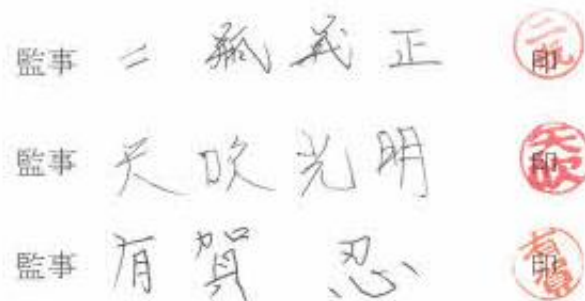 監事 二瓶義正 印
監事 矢吹光明 印
監事 有賀 忍 印